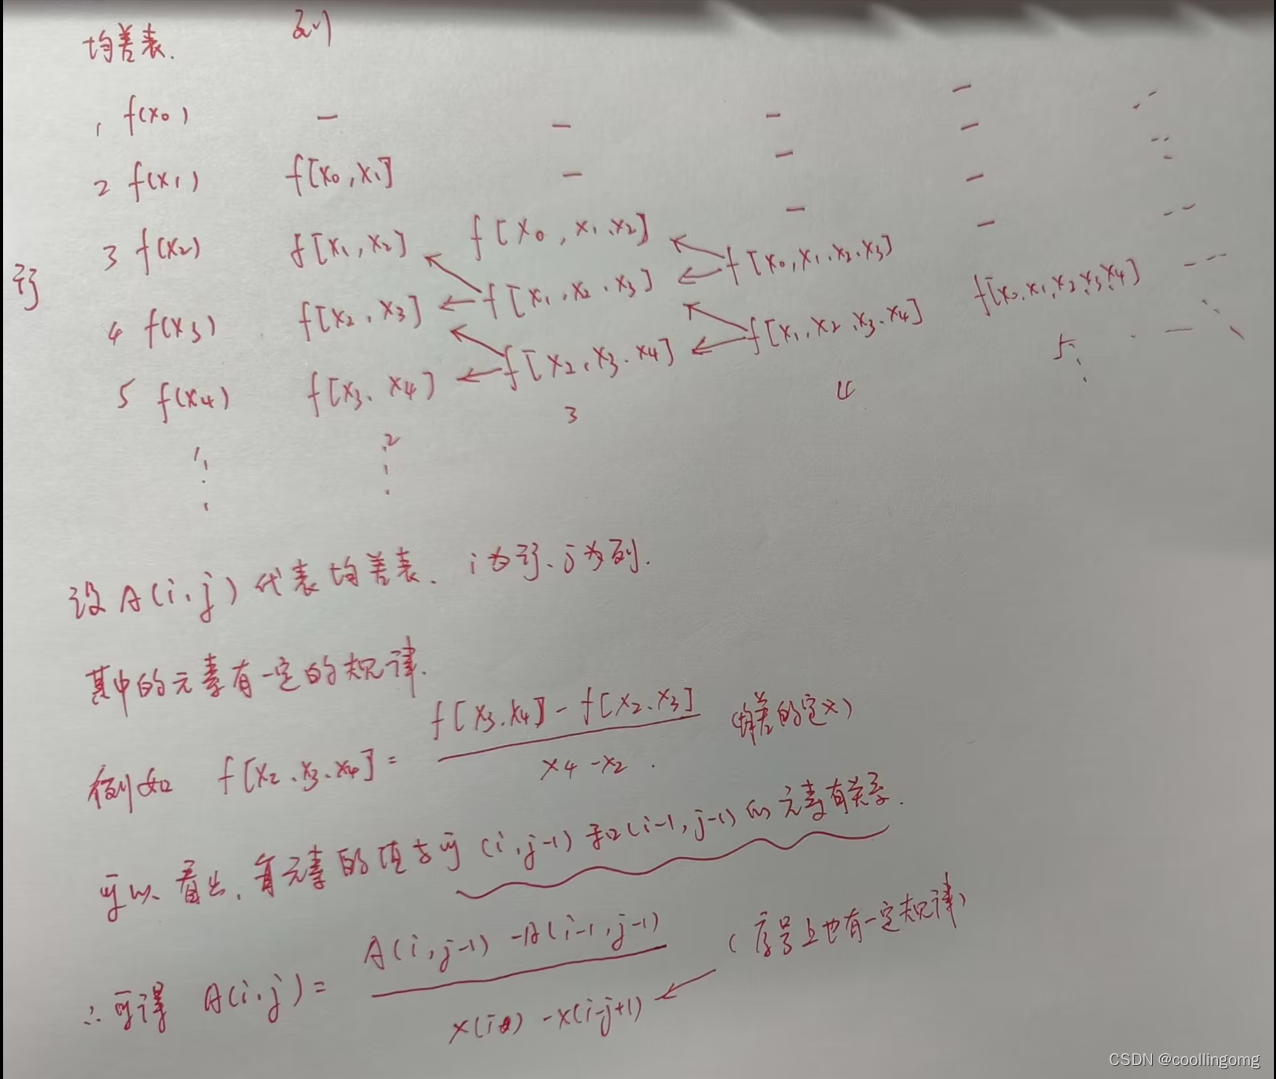 均差表. 列
1 f(x₀) — — — — --
2 f(x₁) f[x₀,x₁] — — — --
3 f(x₂) f[x₁,x₂] f[x₀,x₁.x₂] — — --
行
4 f(x₃) f[x₂,x₃] f[x₁,x₂.x₃] f[x₀,x₁.x₂.x₃] — ---
5 f(x₄) f[x₃、x₄] f[x₂,x₃.x₄] f[x₁,x₂.x₃.x₄] f[x₀.x₁,x₂,x₃,x₄]
1 2 3 4 5
设A(i.j)代表均差表、i为行、j为列.
其中的元素有一定的规律.
例如 f[x₂、x₃、x₄] = (f[x₃.x₄] - f[x₂.x₃]) / (x₄-x₂) . (均差的定义)
可以看出,每元素的值与 (i,j-1)和(i-1,j-1)的元素有关系.
∴可得 A(i.j) = (A(i,j-1) -A(i-1,j-1)) / (x(i) -x(i-j+1)) (序号上也有一定规律)
CSDN @coollingomg